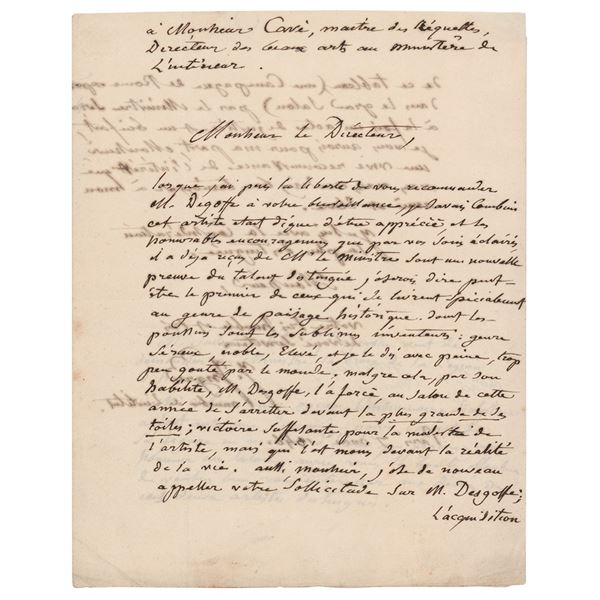 à Monsieur Cavé, maitre des Réquettes,
Directeur des beaux arts au ministère de
L'intérieur.
Monsieur le Directeur,
lorsque j'ai pris la liberté de vous recommander
M. Degoffe à votre bienveillance, je savais combien
cet artiste etait digne d'être apprécié et les
honorables encouragemens que par vos soins éclairés
il a déja reçus de M. le ministre sont une nouvelle
preuve du talent distingué, j'oserois dire peut-
être le premier de ceux qui se livrent spécialement
au genre de paisage historique. dont les
poussins sont les sublimes inventeurs: genre
Sérieux, noble, Elevé, et je le dis avec peine, trop
peu gouté par le monde, malgré cela, par son
habilité, M. Desgoffe, l'a forcé, au salon de cette
année de s'arretter devant la plus grande de ses
toiles; victoire suffisante pour la modestie de
l'artiste, mais qui l'est moins devant la réalité
de la vie. aussi monsieur, j'ose de nouveau
appeller votre sollicitude sur M. Desgoffe;
L'acquisition